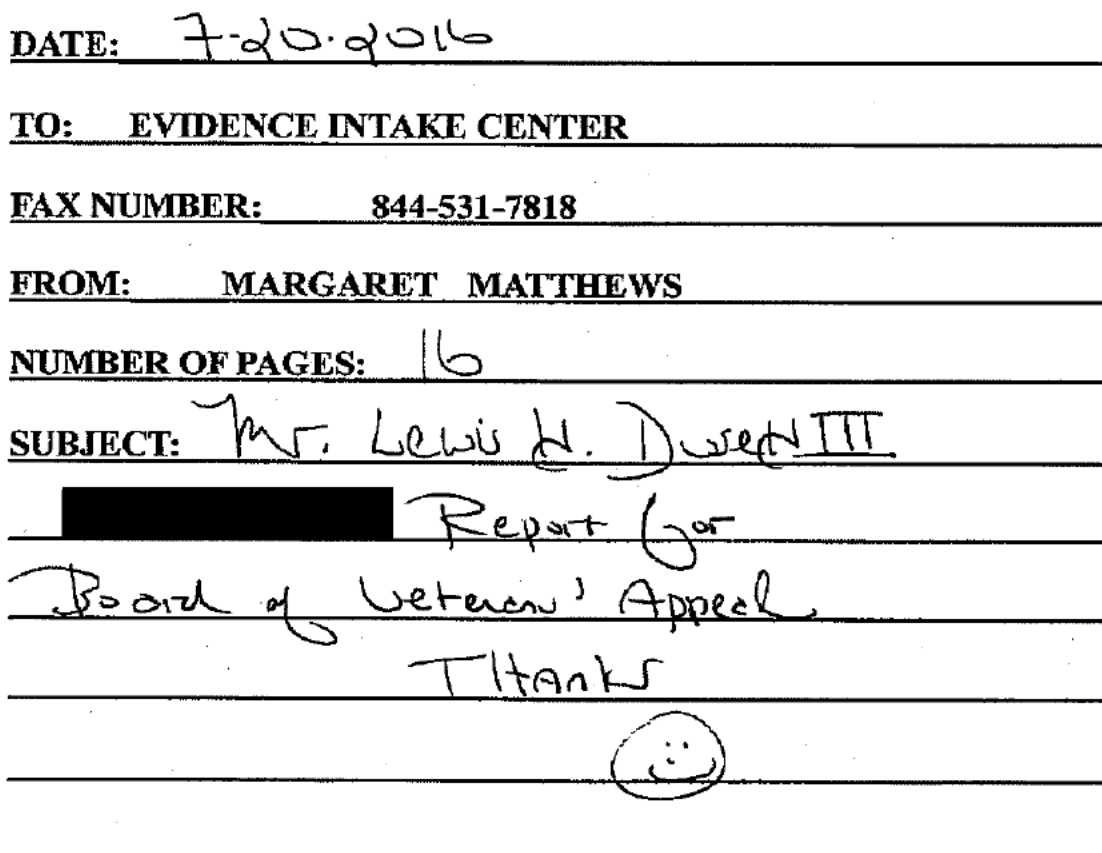 DATE: 7-20-2016
TO: EVIDENCE INTAKE CENTER
FAX NUMBER: 844-531-7818
FROM: MARGARET MATTHEWS
NUMBER OF PAGES: 16
SUBJECT: Mr. Lewis H. III
Report for
Board of Veterans' Appeal
THAnks